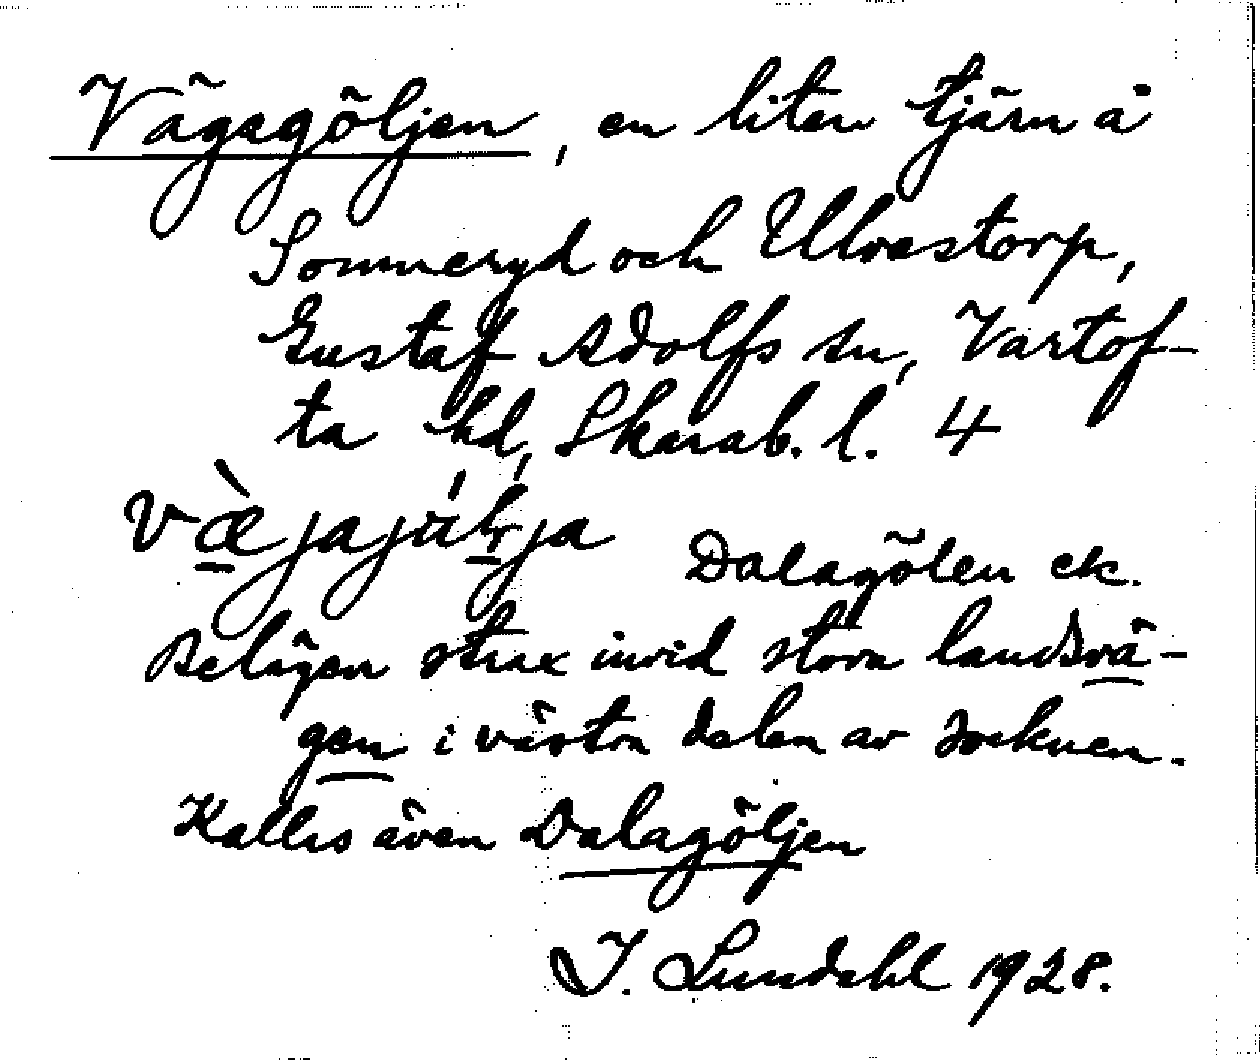 Vägagöljen, en liten tjärn å
Sommeryd och Ulvestorp,
Gustaf Adolfs sn, Vartof-
ta hd, Skarab. l. 4
Dalagölen ek.
Belägen strax invid stora landsvä-
gen i västra delen av socknen.
Kallas även Dalagöljen
I. Lundahl 1928.